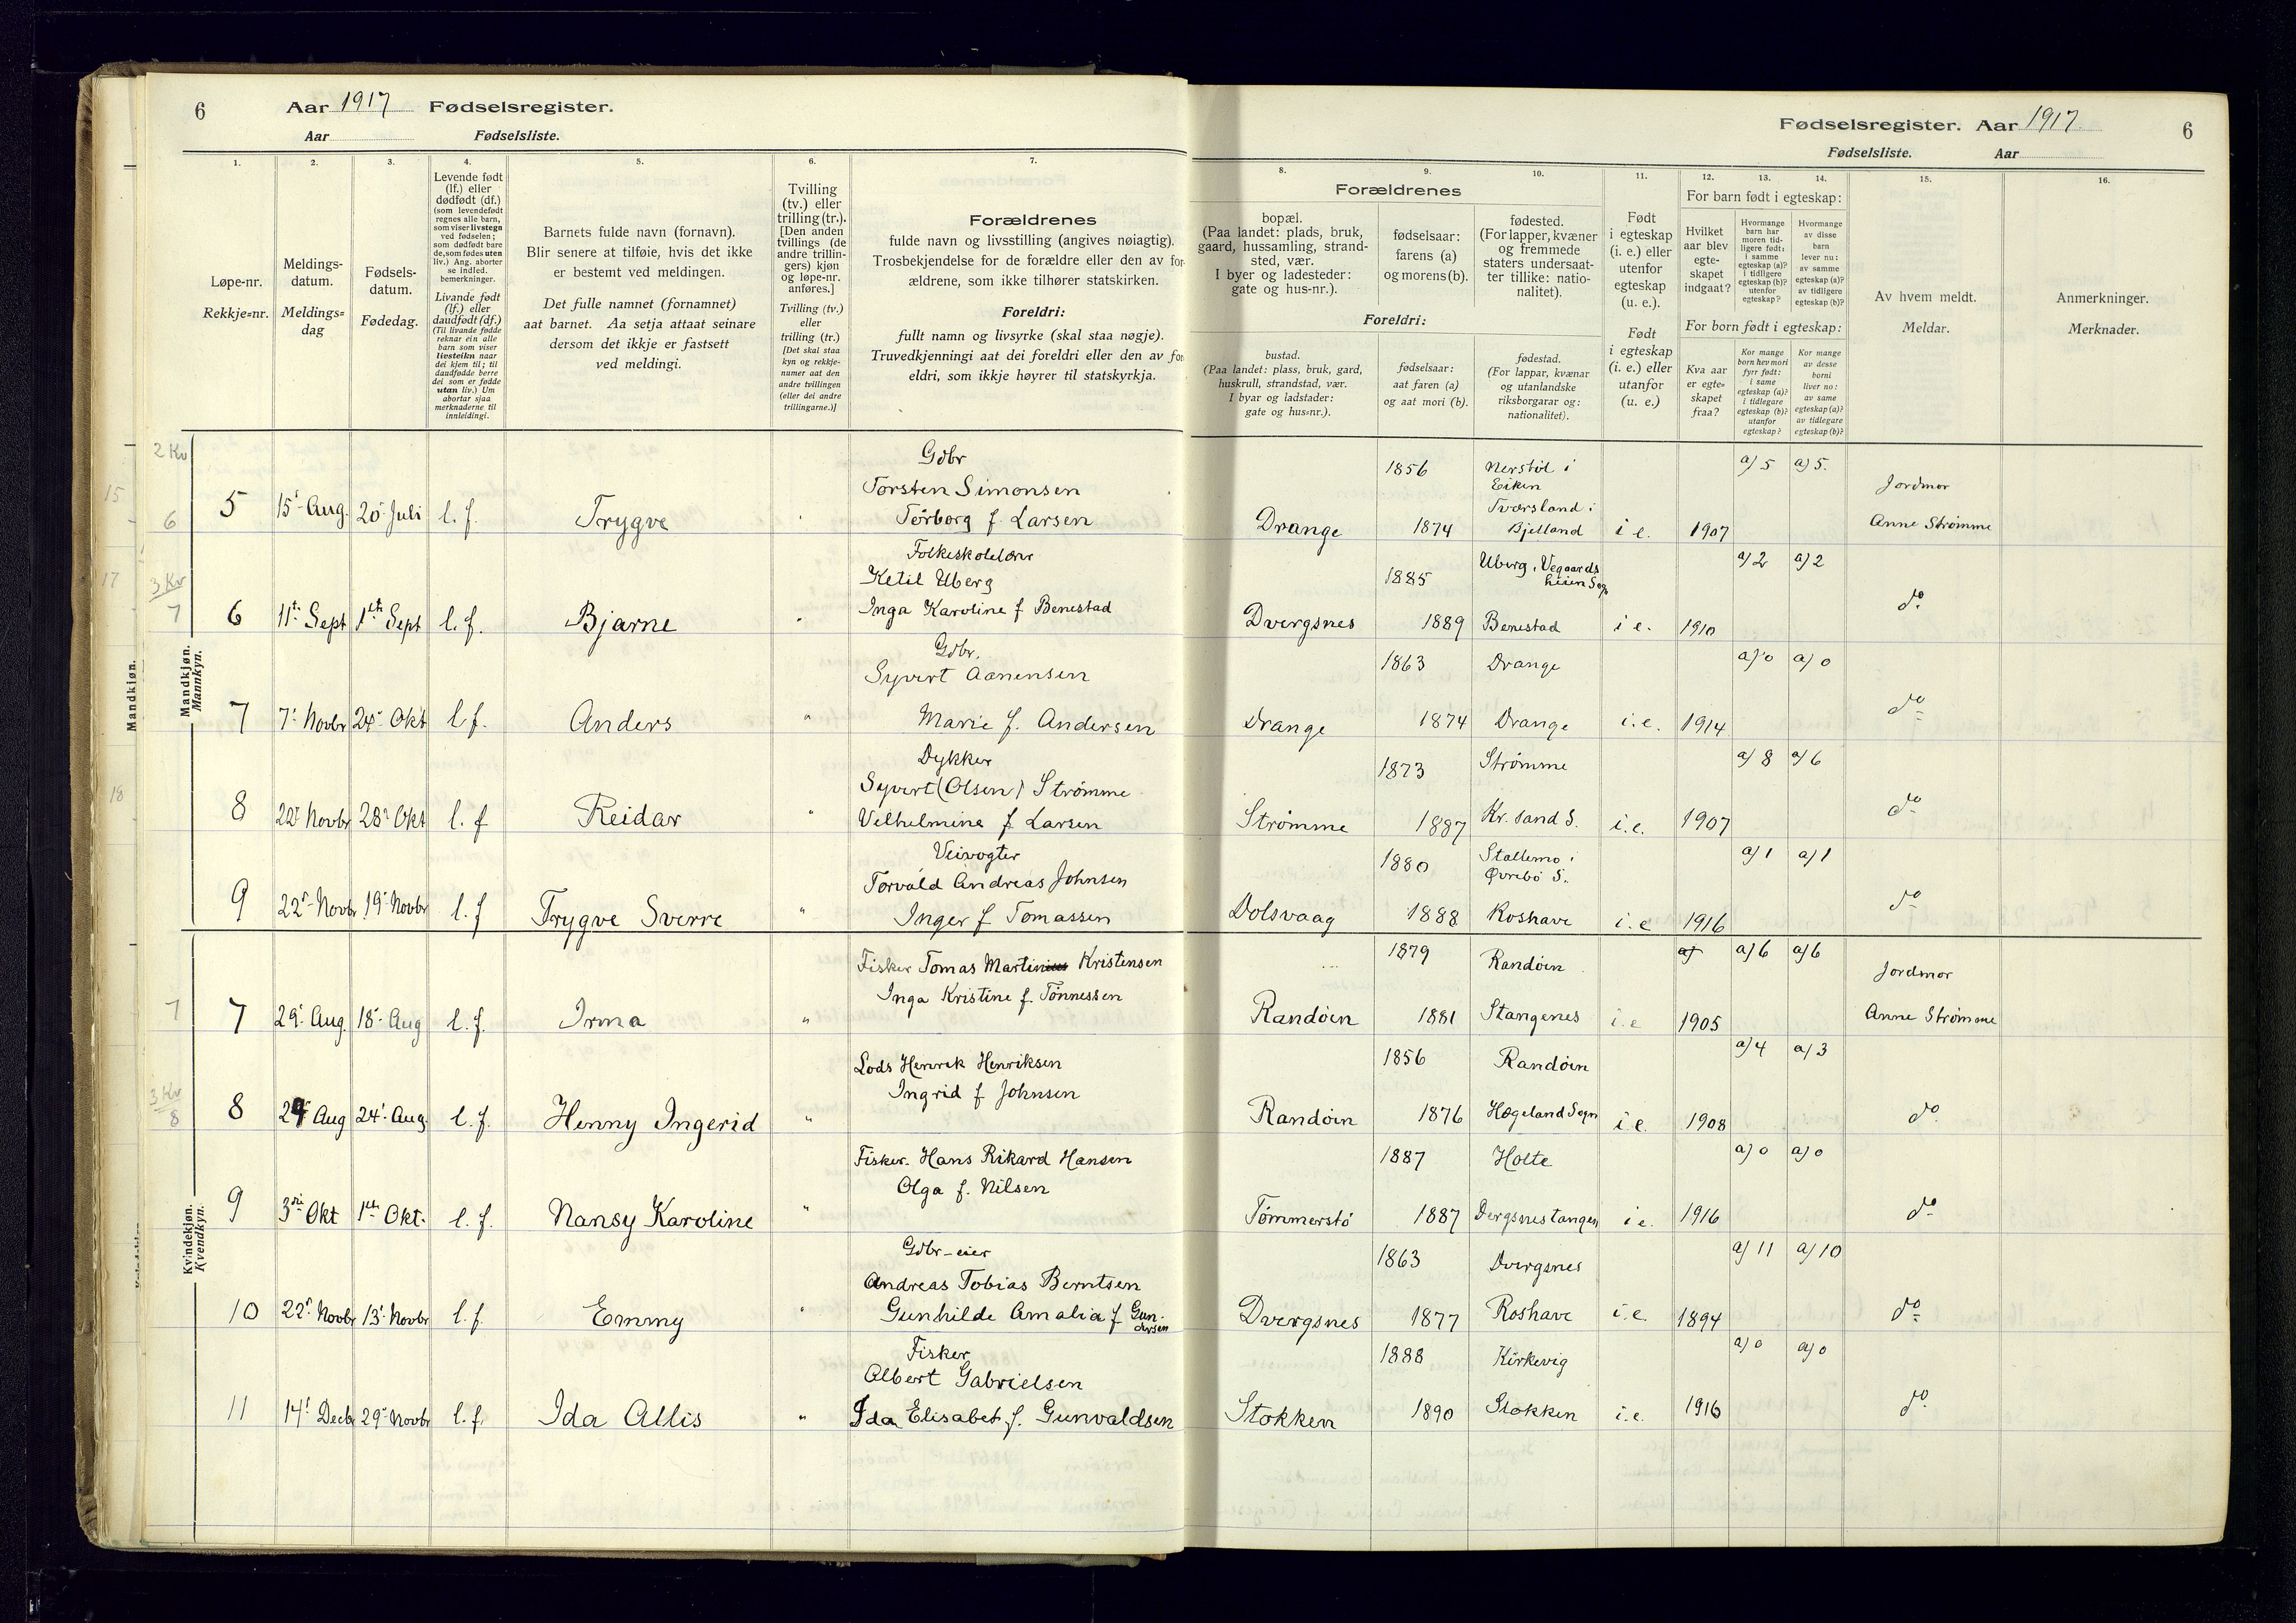 6 Aar 1917 Fødselsregister.
Aar Fødselsliste.
Fødselsregister. Aar 1917. 6
Fødselsliste. Aar
1. 2. 3. 4. 5. 6. 7. 8. 9. 10. 11. 12. 13. 14. 15. 16.
Løpe-nr.
Rekkje=nr.
Meldings-
datum.
Meldings=
dag
Fødsels-
datum.
Fødedag.
Levende født
(lf.) eller
dødfødt (df.)
(som levendefødt
regnes alle barn,
som viser livstegn
ved fødselen;
som dødfødt bare
de, som fødes uten
liv.) Ang. aborter
se indled.
bemerkninger.
Livande født
(lf.) eller
daudfødt (df.)
(Til livande fødde
reknar ein alle
barn som viser
livsteikn naar
dei kjem til; til
daudfødde berre
dei som er fødde
utan liv.) Um
abortar sjaa
merknaderne til
innleidingi.
Barnets fulde navn (fornavn).
Blir senere at tilføie, hvis det ikke
er bestemt ved meldingen.
Det fulle namnet (fornamnet)
aat barnet. Aa setja attaat seinare
dersom det ikkje er fastsett
ved meldingi.
Tvilling
(tv.) eller
trilling (tr.).
[Den anden
tvillings (de
andre trillin-
gers) kjøn
og løpe-nr.
anføres.]
Tvilling (tv.)
eller
trilling (tr.)
[Det skal staa
kyn og rekkje-
numer aat den
andre tvillingen
(eller dei andre
trillingarne.)]
Forældrenes
fulde navn og livsstilling (angives nøiagtig).
Trosbekjendelse for de forældre eller den av for-
ældrene, som ikke tilhører statskirken.
Foreldri:
fullt namn og livsyrke (skal staa nøgje).
Truvedkjenningi aat dei foreldri eller den av for-
eldri, som ikkje høyrer til statskyrkja.
Forældrenes
bopæl.
(Paa landet: plads, bruk,
gaard, hussamling, strand-
sted, vær.
I byer og ladesteder:
gate og hus-nr.).
fødselsaar:
farens (a)
og morens (b).
fødested.
(For lapper, kvæner
og fremmede
staters undersaat-
ter tillike: natio-
nalitet).
Foreldri:
bustad.
(Paa landet: plass, bruk, gard,
huskrull, strandstad, vær.
I byar og ladstader:
gate og hus=nr.).
fødselsaar:
aat faren (a)
og aat mori (b).
fødestad.
(For lappar, kvænar
og utanlandske
riksborgarar og:
nationalitet).
Født
i egteskap
(i. e.) eller
utenfor
egteskap
(u. e.).
Født
i egteskap
(i. e.) eller
utanfor
(u. e.)
For barn født i egteskap:
Hvilket
aar blev
egte-
skapet
indgaat?
Hvormange
barn har
moren tid-
ligere født:
i samme
egteskap (a)?
i tidligere
egteskap (b)?
utenfor
egteskap?
Hvormange
av disse
barn
lever nu:
av samme
egteskap (a)?
av tidligere
egteskap (b)?
For born født i egteskap:
Kva aar
er egte=
skapet
fraa?
Kor mange
born hev mori
fyrr født:
i same
egteskap (a)?
i tidlegare
egteskap (b)?
utanfor
egteskap?
Kor mange
av desse
borni
liver no:
av same
egteskap (a)?
av tidlegare
egteskap (b)?
Av hvem meldt.
Meldar.
Anmerkninger.
Merknader.
Mandkjøn.
Mannkyn.
Gdbr
Torsten Simonsen 1856 Nerstøl i a) 5 a) 5.
Eiken Jordmor
Tversland i
5 15' Aug. 20' Juli l. f. Trygve Tørborg f. Larsen Drange 1874 Bjelland i e. 1907 Anne Strømme
2 Kv
6
Folkeskolelærer
Ketil Uberg 1885 Uberg, Vegaards a) 2 a) 2
heien Sogn
6 11te Sept 1ste Sept l. f. Bjarne Inga Karoline f Benestad Dvergsnes 1889 Benestad i e. 1910 do
3 Kv
7
Gdbr.
Syvert Aanensen 1863 Drange a) 0 a) 0
7 7' Novbr 24' Okt l f. Anders " Marie f. Andersen Drange 1874 Drange i. e. 1914 do
Dykker
Syvert (Olsen) Strømme 1873 Strømme a) 8 a) 6
8 22' Novbr 28' Okt l. f Reidar " Velhelmine f Larsen Strømme 1887 Kr. sand S. i. e. 1907 do
Veivogter
Torvald Andreas Johnsen 1880 Stallemo i a) 1 a) 1
Øvrebø S.
9 22' Novbr 19' Novbr l. f Trygve Sverre " Inger f Tomassen Dolsvaag 1888 Roshave i. e 1916 do
Kvindekjøn.
Kvendkyn.
Fisker Tomas Martinius Kristensen 1879 Randøen a) a) 6 a) 6 Jordmor
7 29' Aug. 18' Aug l. f. Irma " Inga Kristine f. Tønnessen Randøen 1881 Stangenes i. e 1905 Anne Strømme
7
Lods Henrek Henriksen 1856 Randøen a) 4 a) 3
8 29' Aug 24' Aug. l. f. Henny Ingerid " Ingrid f Johnsen Randøen 1876 Hægeland Sogn i e. 1908 do
3 Kv
8
Fisker. Hans Rikard Hansen 1887 Holte a) 0 a) 0
9 3die Okt 1ste Okt. l. f. Nansy Karoline " Olga f. Nilsen Tømmerstø 1887 Dvergsnestangen i e. 1916 do
Gdbr-eier
Andreas Tobias Berntsen 1863 Dvergsnes a) 11 a) 10
10 22' Novbr 13' Novbr l. f. Emmy " Gunhilde Amalia f Gun-
dersen Dvergsnes 1877 Roshave i. e. 1894 do
Fisker
Albert Gabrielsen 1888 Kirkevig a) 0 a) 0
11 14' Decbr 29' Novbr l. f. Ida Allis " Ida Elisabet f. Gunvaldsen Stokken 1890 Stokken i. e. 1916 do